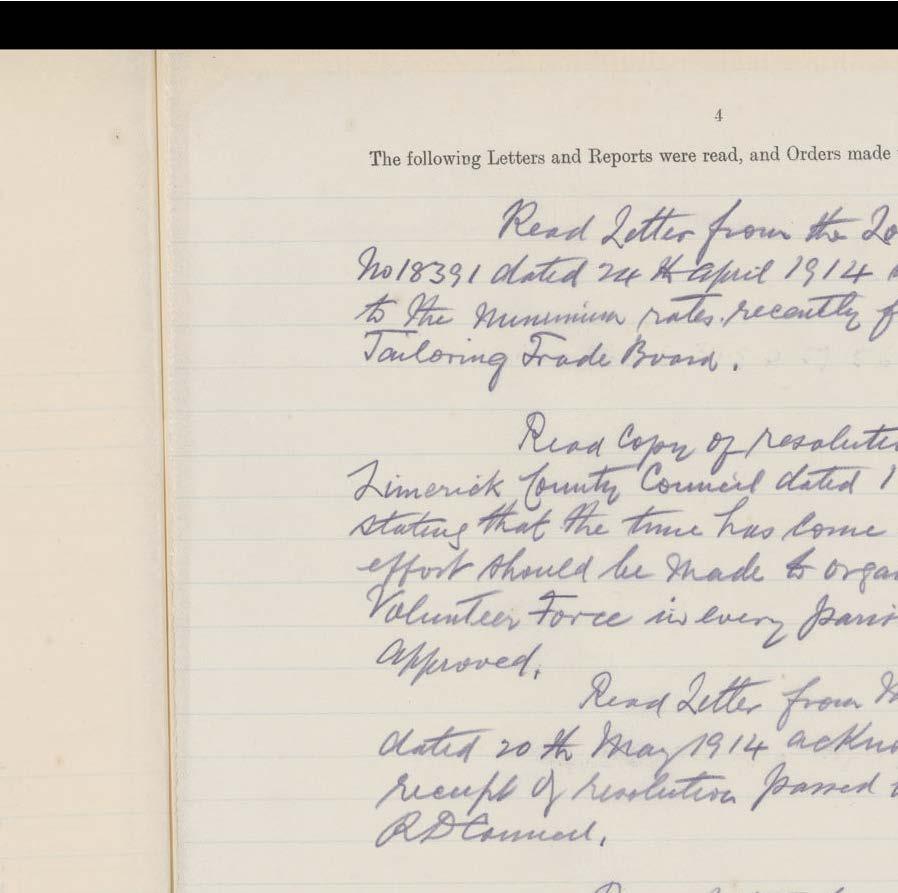 4
The following Letters and Reports were read, and Orders made
Read Letter from the Lo
No 18391 dated 24th April 1914
to the Minimum rates recently f
Tailoring Trade Board.
Read Copy of resoluti
Limerick County Council dated 1
stating that the time has come
effort should be made to orga
Volunteer Force in every paris
approved.
Read Letter from M
dated 20th May 1914 ackno
receipt of resolution passed
RDCouncil.